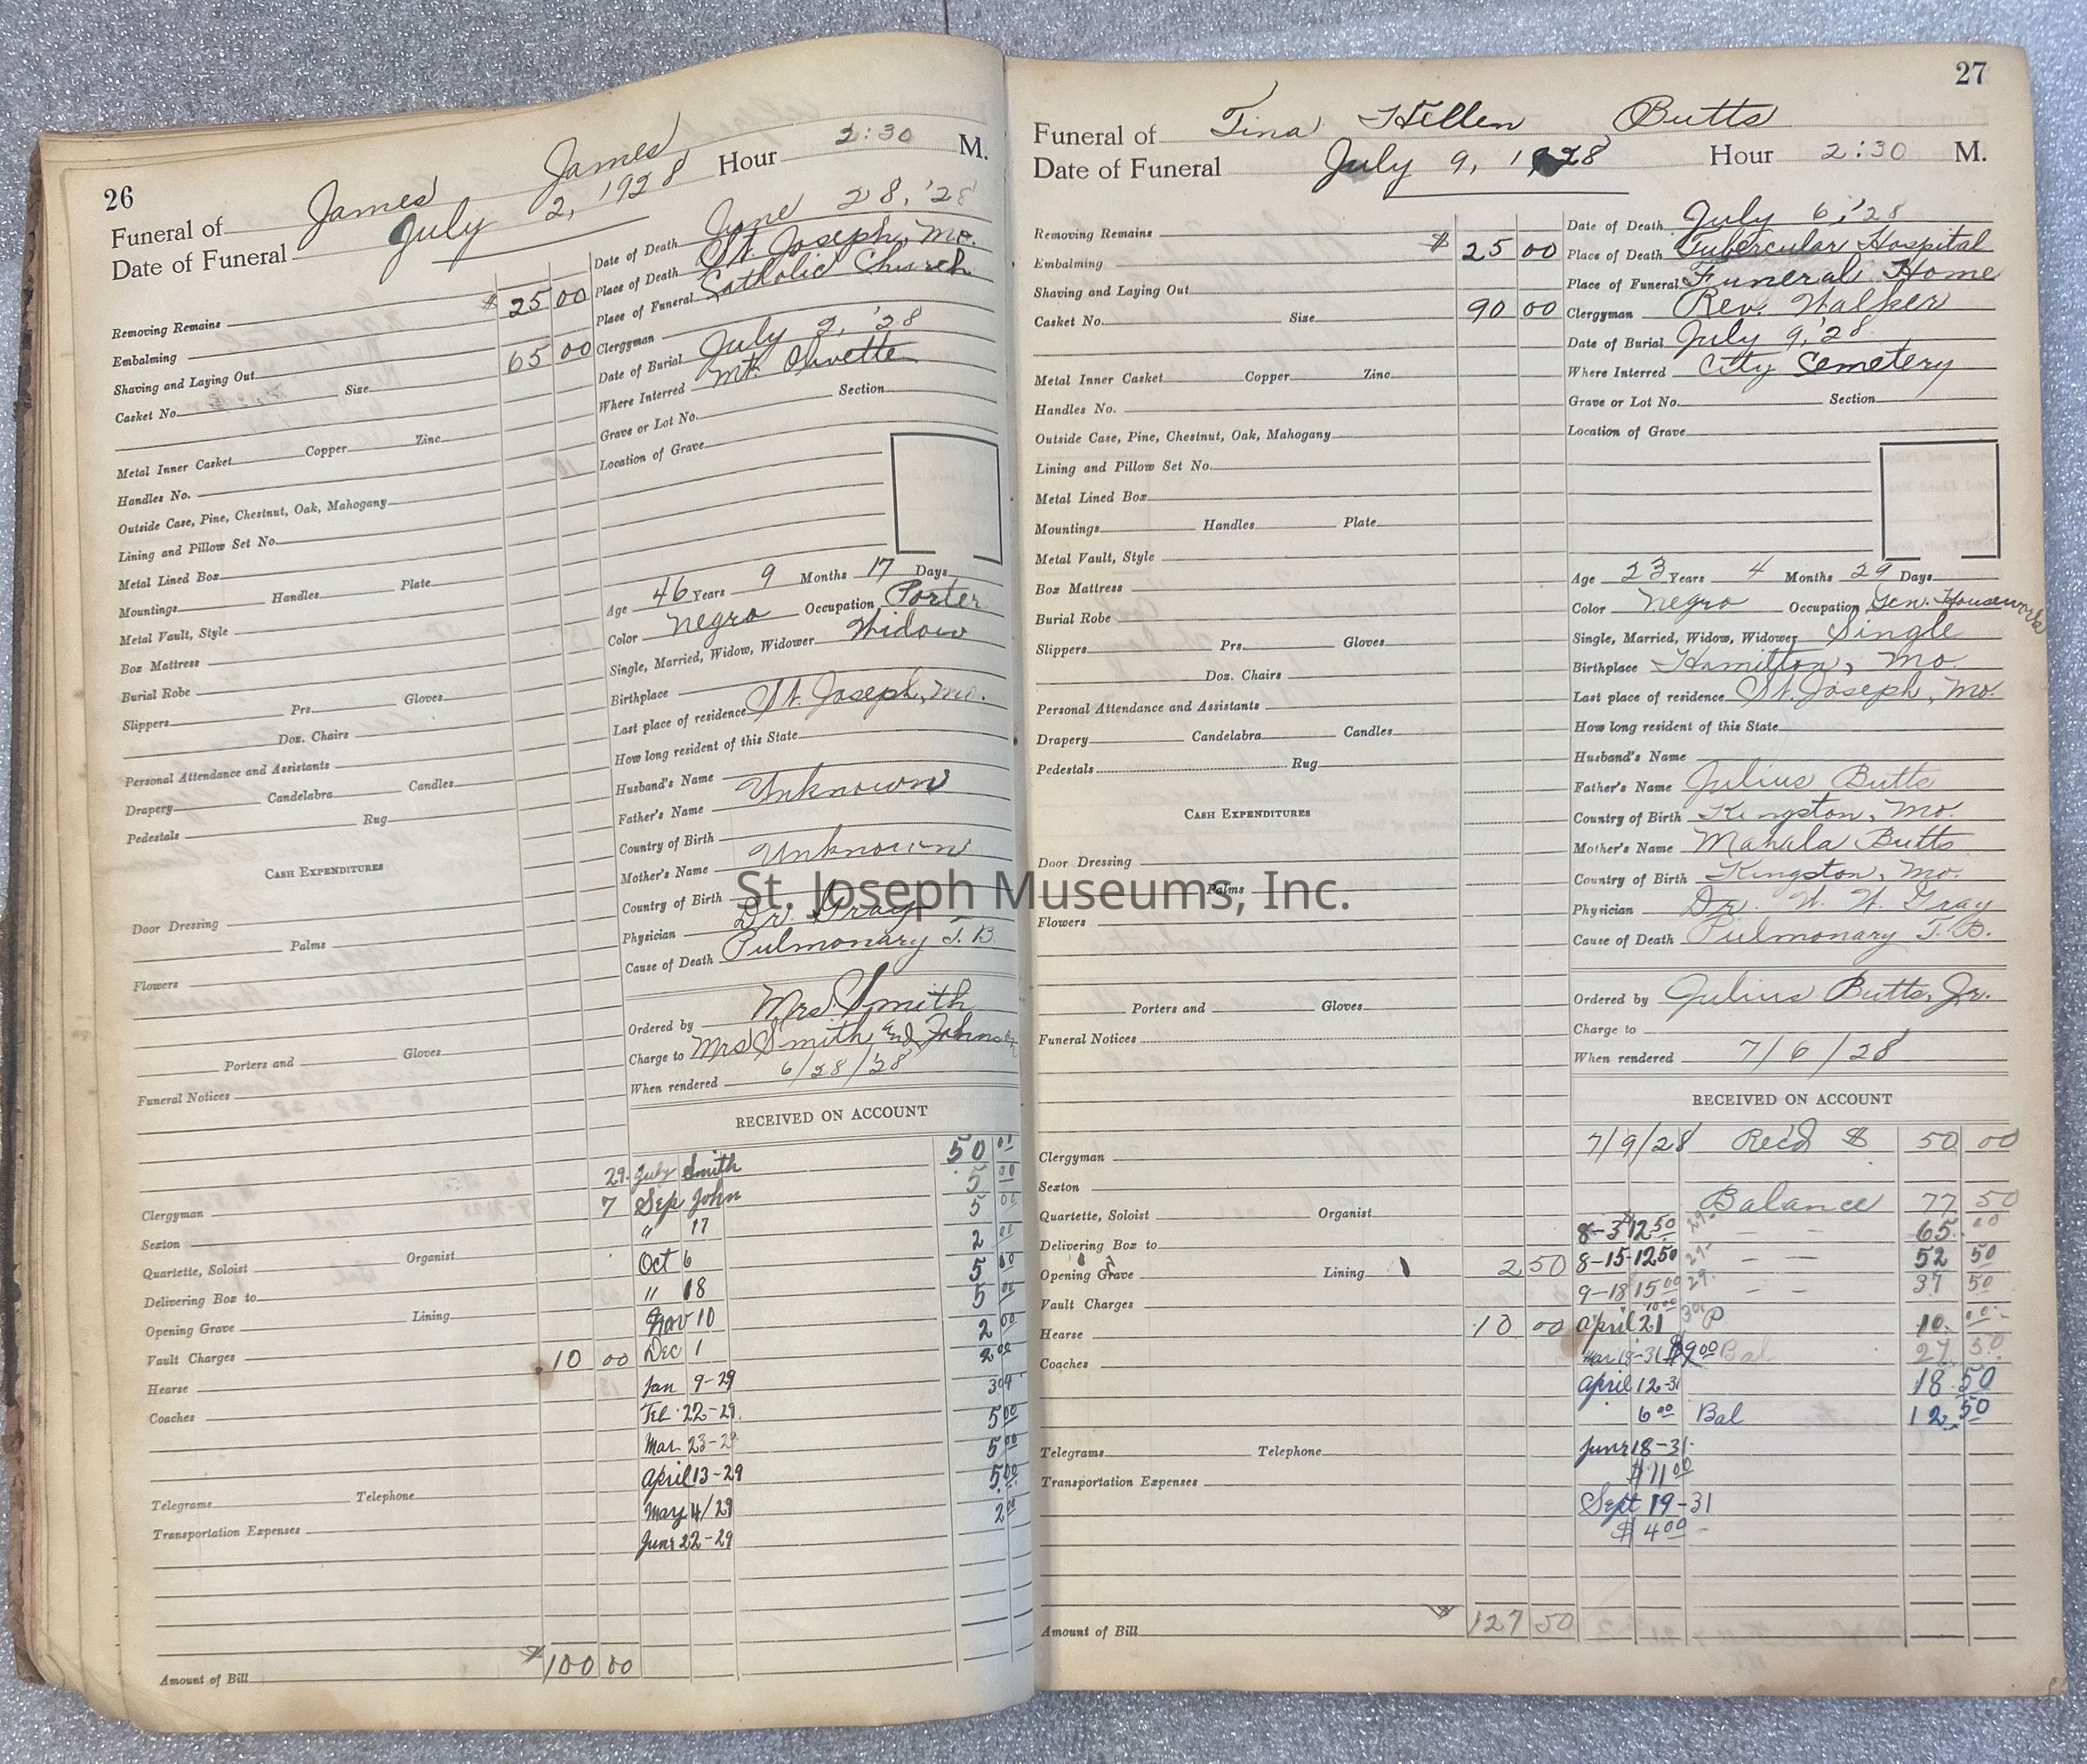 26
Funeral of James James
Date of Funeral July 2, 1928 Hour 2:30 M.
Removing Remains
Embalming $ 25 00
Shaving and Laying Out
Casket No. Size 65 00
Metal Inner Casket Copper Zinc
Handles No.
Outside Case, Pine, Chestnut, Oak, Mahogany
Lining and Pillow Set No.
Metal Lined Box
Mountings Handles Plate
Metal Vault, Style
Box Mattress
Burial Robe
Slippers Prs. Gloves
Doz. Chairs
Personal Attendance and Assistants
Drapery Candelabra Candles
Pedestals Rug
CASH EXPENDITURES
Door Dressing
Palms
Flowers
Porters and Gloves
Funeral Notices
Clergyman
Sexton
Quartette, Soloist Organist
Delivering Box to
Opening Grave Lining
Vault Charges
Hearse 10 00
Coaches
Telegrams Telephone
Transportation Expenses
Amount of Bill $ 100 00
Date of Death June 28, '28
Place of Death St. Joseph, Mo.
Place of Funeral Catholic Church
Clergyman
Date of Burial July 2, '28
Where Interred Mt. Olivette
Grave or Lot No. Section
Location of Grave
Age 46 Years 9 Months 17 Days
Color Negro Occupation Porter
Single, Married, Widow, Widower Widow
Birthplace
Last place of residence St. Joseph, Mo.
How long resident of this State
Husband's Name
Father's Name Unknown
Country of Birth
Mother's Name Unknown
Country of Birth
Physician Dr. Gray
Cause of Death Pulmonary T. B.
Ordered by Mrs. Smith
Charge to Mrs Smith
When rendered 6/28/'28
RECEIVED ON ACCOUNT
50 00
29. July Smith 5 00
7 Sep John 5 00
" 17 2 00
Oct 6 5 00
" 18 5 00
Nov 10 2 00
Dec 1 2 00
Jan 9-29
Feb 22-29. 5 00
Mar. 23-29 5 00
April 13-29 5 00
May 4/29 2 00
June 22-29
27
Funeral of Tina Hellen Butts
Date of Funeral July 9, 1928 Hour 2:30 M.
Removing Remains
Embalming $ 25 00
Shaving and Laying Out
Casket No. Size 90 00
Metal Inner Casket Copper Zinc
Handles No.
Outside Case, Pine, Chestnut, Oak, Mahogany
Lining and Pillow Set No.
Metal Lined Box
Mountings Handles Plate
Metal Vault, Style
Box Mattress
Burial Robe
Slippers Prs. Gloves
Doz. Chairs
Personal Attendance and Assistants
Drapery Candelabra Candles
Pedestals Rug
CASH EXPENDITURES
Door Dressing
Palms
Flowers
Porters and Gloves
Funeral Notices
Clergyman
Sexton
Quartette, Soloist Organist
Delivering Box to
Opening Grave Lining 2 50
Vault Charges
Hearse 10 00
Coaches
Telegrams Telephone
Transportation Expenses
Amount of Bill $ 127 50
Date of Death July 6, '28
Place of Death Tubercular Hospital
Place of Funeral Funeral Home
Clergyman Rev. Walker
Date of Burial July 9, '28
Where Interred City Cemetery
Grave or Lot No. Section
Location of Grave
Age 23 Years 4 Months 29 Days
Color Negro Occupation Gen. Housework
Single, Married, Widow, Widower Single
Birthplace Hamilton, Mo.
Last place of residence St. Joseph, Mo.
How long resident of this State
Husband's Name
Father's Name Julius Butts
Country of Birth Kingston, Mo.
Mother's Name Mahala Butts
Country of Birth Kingston, Mo.
Physician Dr. W. W. Gray
Cause of Death Pulmonary T. B.
Ordered by Julius Butts, Jr.
Charge to
When rendered 7/6/28
RECEIVED ON ACCOUNT
7/9/28 Rec'd $ 50 00
Balance 77 50
8-3 12 50 29- 65. 00
8-15-12 50 29- 52 50
9-18 15 00 29. 37 50
April 21 10 00 30 10. 00
Mar 18-31 $9 00 Bal 27 50
April 12-31 18 50
6 00 Bal 12 50
June 18-31-
$11 00
Sept 19-31
$ 4 00
St. Joseph Museums, Inc.